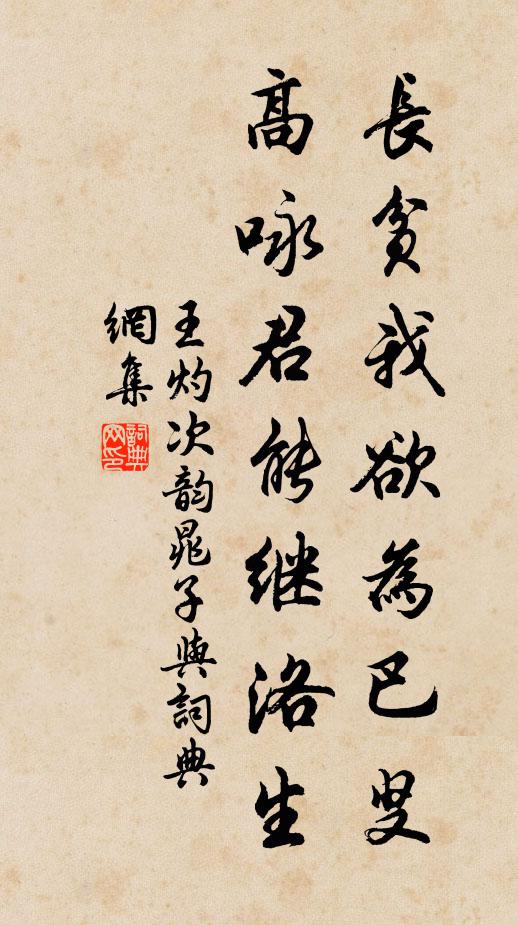 長貧我欲為巴叟
高咏君能繼洛生
王灼次韵晁子與詞典
網集
詞典網印